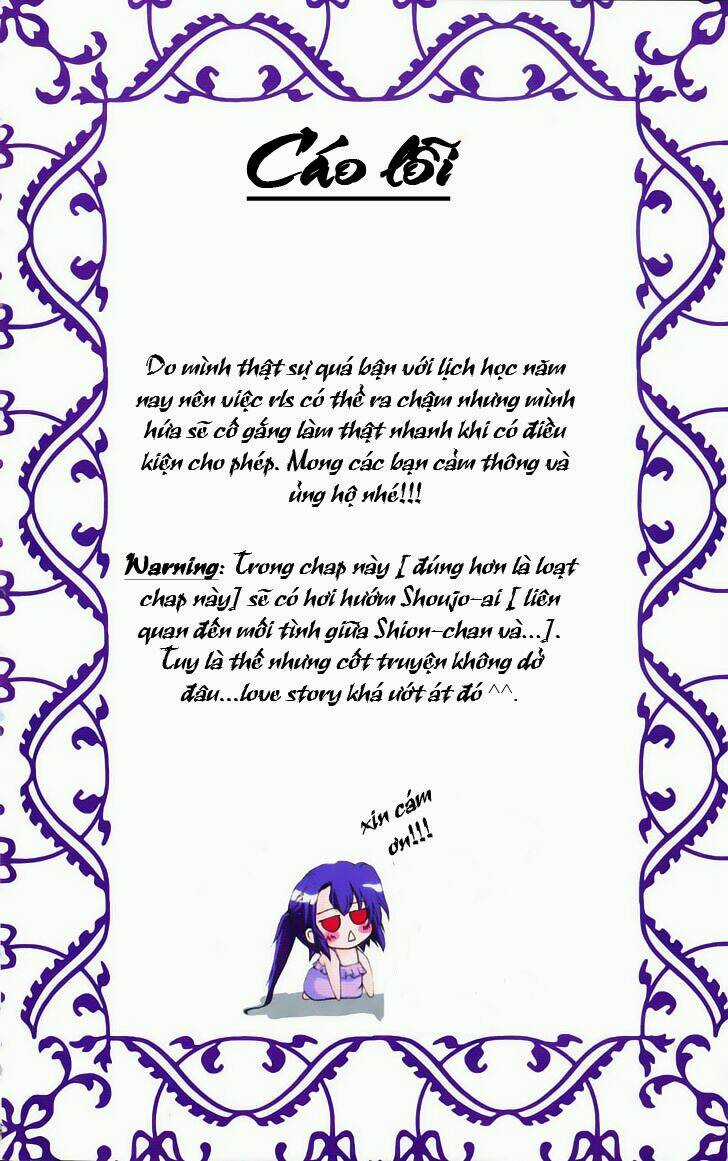 Cáo lỗi
Do mình thật sự quá bận với lịch học năm
nay nên việc rls có thể ra chậm nhưng mình
hứa sẽ cố gắng làm thật nhanh khi có điều
kiện cho phép. Mong các bạn cảm thông và
ủng hộ nhé!!!
Warning: Trong chap này [ đúng hơn là loạt
chap này] sẽ có hơi hướm Shoujo-ai [ liên
quan đến mối tình giữa Shion-chan và...].
Tuy là thế nhưng cốt truyện không dở
đâu...love story khá ướt át đó ^^.
xin cám
ơn!!!